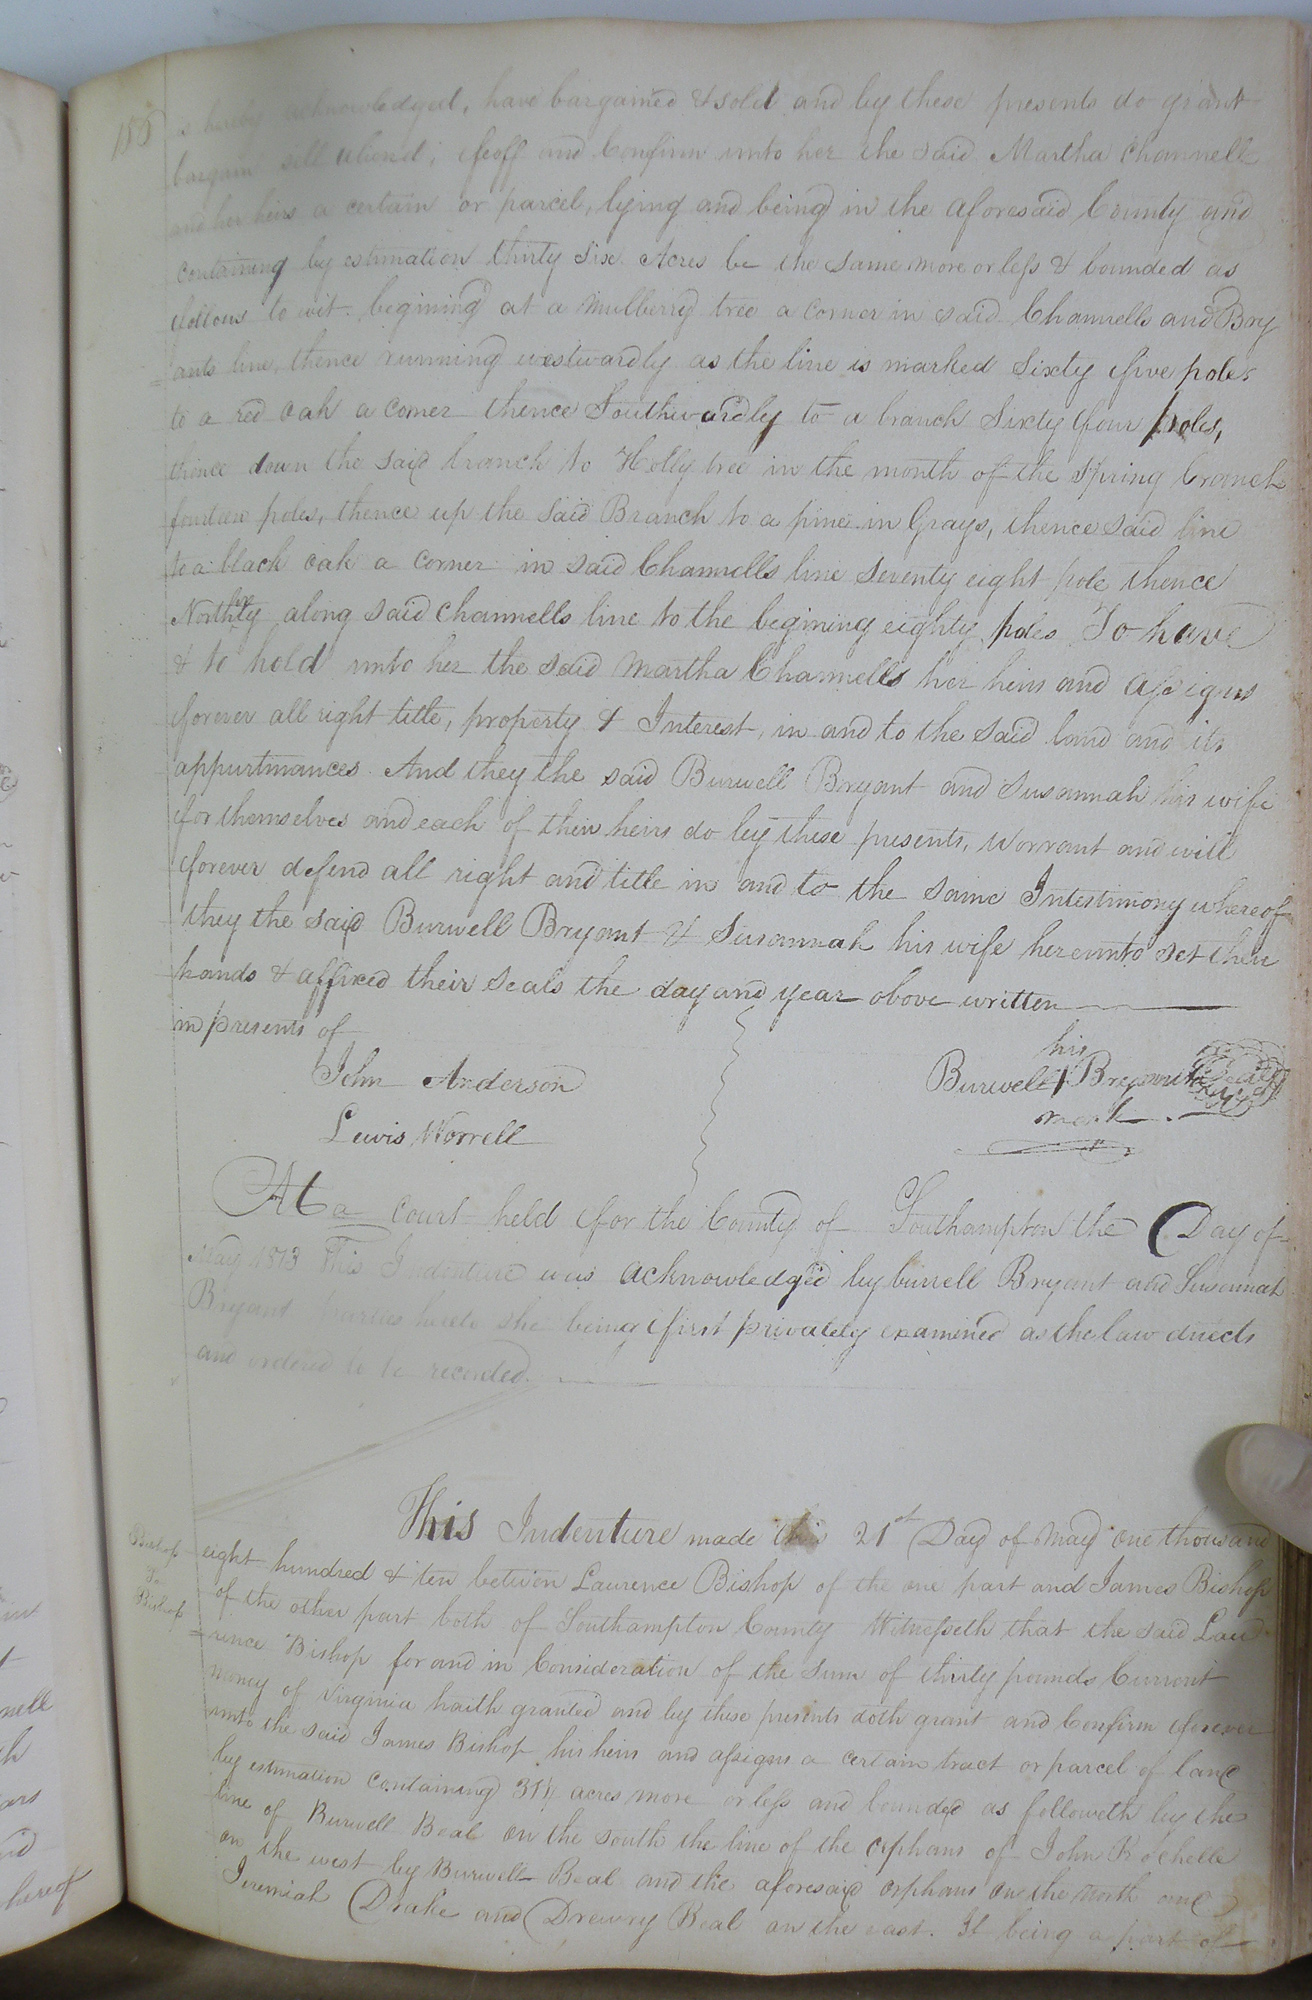 is hereby acknowledged, have bargained & sold and by these presents do grant
bargain sell aliend, efeoff and Confirm unto her the said Martha Channell
and her heirs a certain or parcel, lying and being in the aforesaid County and
containing by estimation thirty six Acres be the same more or less & bounded as
follows to wit. begining at a mulberry tree a corner in said Channells and Bry
ants line, thence running westwardly as the line is marked Sixty five poles
to a red oak a corner thence Southwardly to a branch Sixty four poles,
thence down the said branch to Holly tree in the mouth of the Spring branch
fourteen poles, thence up the said Branch to a pine in Grays, thence said line
to a black oak a corner in said Channells line Seventy eight pole thence
Northly along said Channells line to the begining eighty poles To have
& to hold unto her the said Martha Channells her heirs and assigns
forever all right title, property & Interest, in and to the said land and its
appurtinances. And they the said Burwell Bryant and Susannah his wife
for themselves and each of their heirs do by these presents, Warrant and will
forever defend all right and title in and to the same In testimony whereof
they the said Burwell Bryant & Susannah his wife hereunto set their
hands & affixed their Seals the day and year above written
in presents of
his
John Anderson Burwell Bryant Seal
mark
Lewis Worrell
At a court held for the County of Southampton the Day of
May 1813 This Indenture was acknowledged by burrell Bryant and Susannah
Bryant parties hereto she being first privately examined as the law directs
and ordered to be recorded.
This Indenture made this 21st Day of May one thousand
Bishop
To
Bishop
eight hundred & ten between Laurence Bishop of the one part and James Bishop
of the other part both of Southampton County Witnesseth that the said Lau
rence Bishop for and in Consideration of the Sum of thirty pounds Current
money of Virginia haith granted and by these presents doth grant and Confirm forever
unto the said James Bishop his heirs and assigns a certain tract or parcel of land
by estimation containing 31 1/4 acres more or less and bounded as followeth by the
line of Burwell Beal on the South the line of the orphans of John Rochelle
on the west by Burwell Beal and the aforesaid orphans on the North and
Jeremiah Drake and Drewry Beal on the east. It being a part of